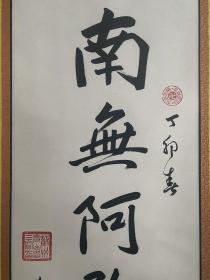 南無阿
丁卯春